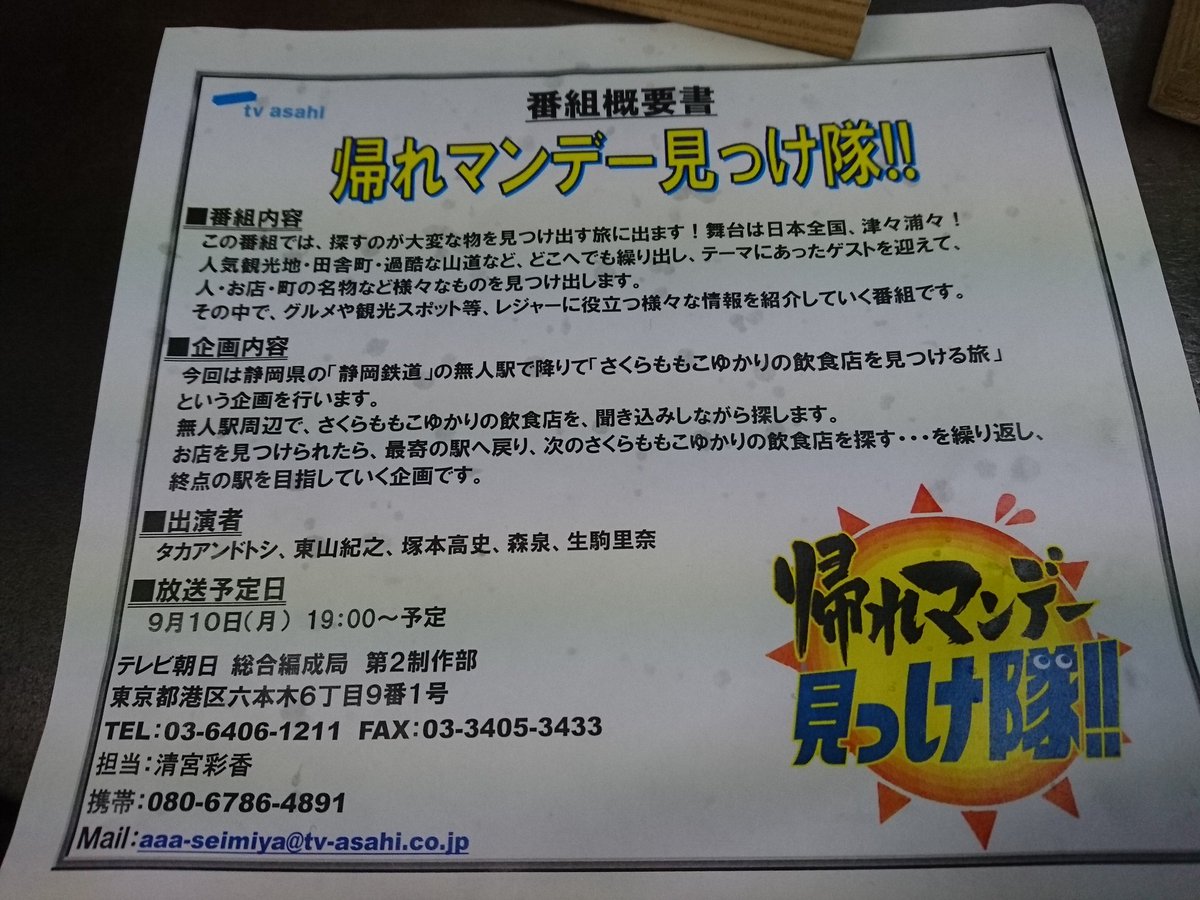 tv asahi
番組概要書
帰れマンデー見っけ隊!!
■番組内容
この番組では、探すのが大変な物を見つけ出す旅に出ます！舞台は日本全国、津々浦々！
人気観光地・田舎町・過酷な山道など、どこへでも繰り出し、テーマにあったゲストを迎えて、
人・お店・町の名物など様々なものを見つけ出します。
その中で、グルメや観光スポット等、レジャーに役立つ様々な情報を紹介していく番組です。
■企画内容
今回は静岡県の「静岡鉄道」の無人駅で降りて「さくらももこゆかりの飲食店を見つける旅」
という企画を行います。
無人駅周辺で、さくらももこゆかりの飲食店を、聞き込みしながら探します。
お店を見つけられたら、最寄の駅へ戻り、次のさくらももこゆかりの飲食店を探す・・・を繰り返し、
終点の駅を目指していく企画です。
■出演者
タカアンドトシ、東山紀之、塚本高史、森泉、生駒里奈
■放送予定日
9月10日(月) 19:00～予定
テレビ朝日 総合編成局 第2制作部
東京都港区六本木6丁目9番1号
TEL:03-6406-1211 FAX:03-3405-3433
担当:清宮彩香
携帯:080-6786-4891
Mail:aaa-seimiya@tv-asahi.co.jp
帰れマンデー
見っけ隊!!